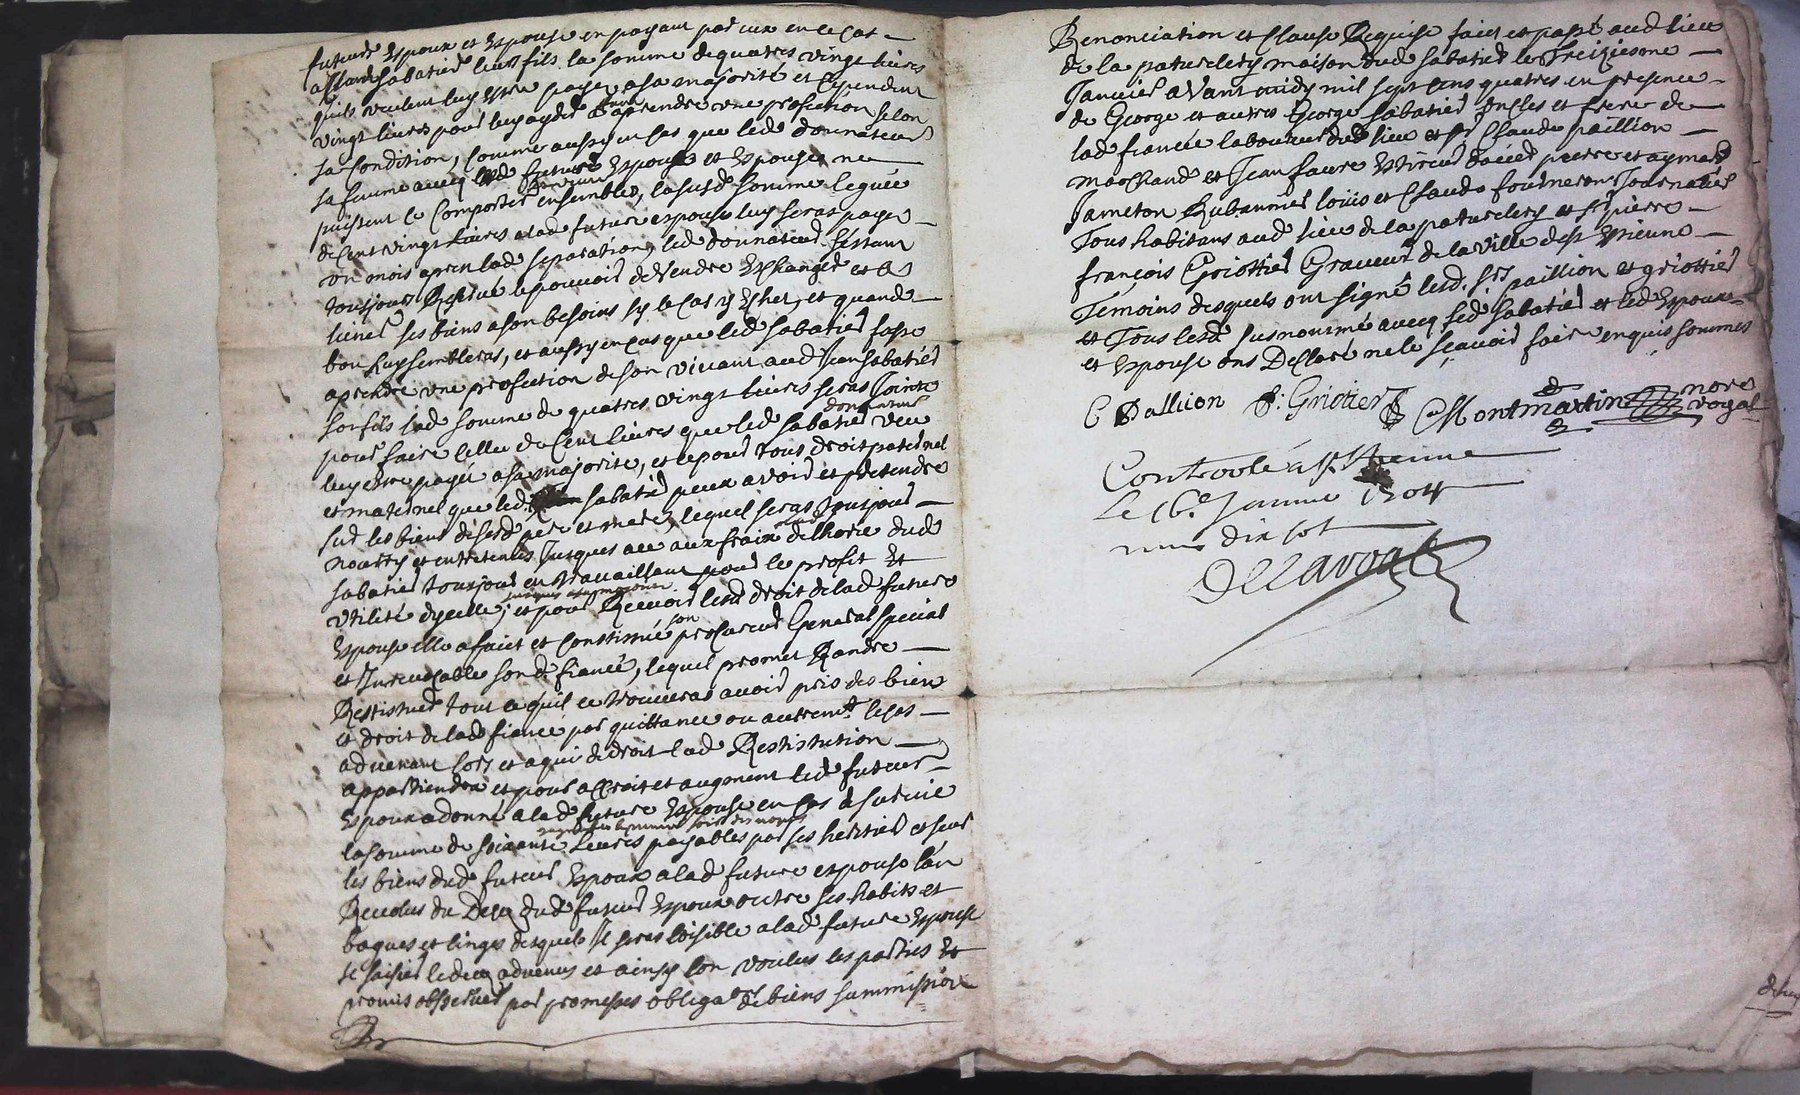 future Espoux et Espouse en payant par eux en ce cas
sabatier leur fils la somme de quatres vingt livres
qu'ils veulent luy estre payé a sa majorité et cependent
vingt livres pour luy ayder a aprendre une profection selon
sa condition, comme aussy en cas que led donnateur
sa femme avecq led future Espoux et Espouse ne
puissent ce comporter ensembles, la susd somme leguée
de cent vingt livres a lad future espouse luy seras payer
un mois apres lad separation, led donnateur s'estant
toujours Reservé le pouvoir de vendre Eschanger et
ses biens a son besoins sy le cas y Echet, et quand
bon luy sembleras, et aussy en cas que led sabatier fasse
aprendre une profection de son vivant aud Jean sabatier
son fils lad somme de quatres vingt livres seras Jointe
pour faire celle de cent livres que led sabatier donnateur veu
luy estre payée a sa majorité, et ce pour tous droit paternel
et maternel que led sabatier peux avoir et pretendre
sur les biens de sesd pere et mere, lequel seras tousjour
nourry et entretenus Jusques aux fraix de lhoirie dud
sabatier tousjour en travaillant pour le profit et
utilité dycelle, jusques a sa majorité et pour Recevoir lesd droit de lad future
Espouse elle a faict et constitué son procureur General special
et Irrevocable sond fiancé, lequel promet Randre
Restituer tout ce qu'il ce trouveras avoir pris des bien
et droit de lad fiancée par quittance ou autremt le cas
advenant lors et a qui de droit lad Restitution
appartiendra et pour accroit et augment led futeur
Espoux a donné a lad future Espouse en cas de survie
la somme de soixante Livres payables par ses heritier et sur
les biens dud futeur Espoux a lad future espouse l'an
Revolus du Deces dud futeur Espoux outre ses habits et
bagues et linges desquels Il seras loisible a lad future Espouse
se saisir led cas advenus et ainsy lon voulus les parties Et
promis observer par promesses obligaon de biens summission
Renonciation et clause Requise faict et passé aud lieu
de la paturelery maison dud sabatier le Treiziesme
Janvier avant midy mil sept cens quatres en presence
de George et autres George sabatier oncles et frere de
lad fiancée laboureur dud lieu et sr Claude paillion
marchand et Jean faure pierre et aymard
Jameton Rubannier louis et Claude fourneron
Tous habitans aud lieu de la paturelery et sr pierre
françois Griottier Graveur de la ville de st Estienne
Témoins desquels ont signé lesd. srs paillion et griottier
et Tous lesd susnommé avecq led sabatier et led Espoux
et Espouse ons Declaré ne le sçavoir faire enquis sommés
C Pallion P. Griotier Montmartin nore
royal
Controolé a st Etienne
Le 16e Janvier 1704
dix sol
Delavoa